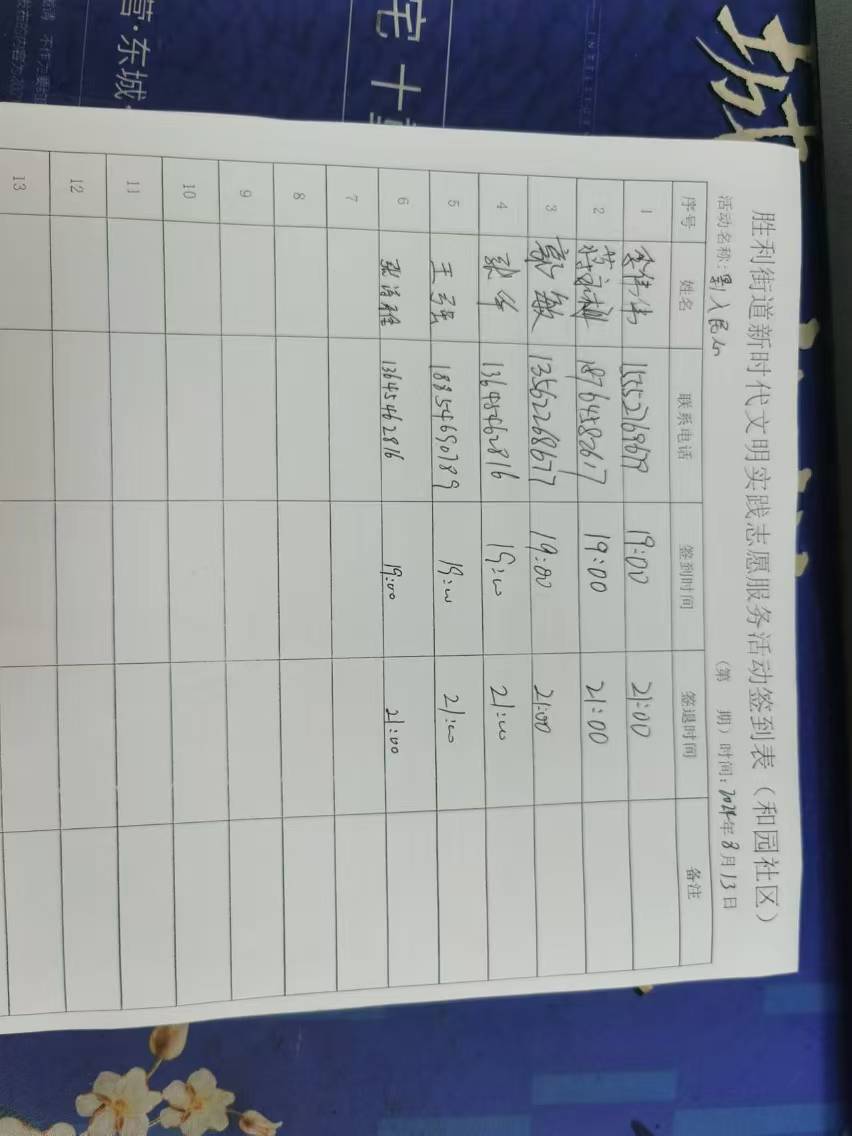 胜利街道新时代文明实践志愿服务活动签到表（和园社区）
活动名称: （第 期）时间：2024年8月13日
序号 姓名 联系电话 签到时间 签退时间 备注
1 李伟伟 19:00 21:00
2 18764582617 19:00 21:00
3 郭敏 13562268677 19:00 21:00
4 张华 13645462816 19:00 21:00
5 18854690789 19:00 21:00
6 13645462816 19:00 21:00
7
8
9
10
11
12
13
营·东城
宅十
城